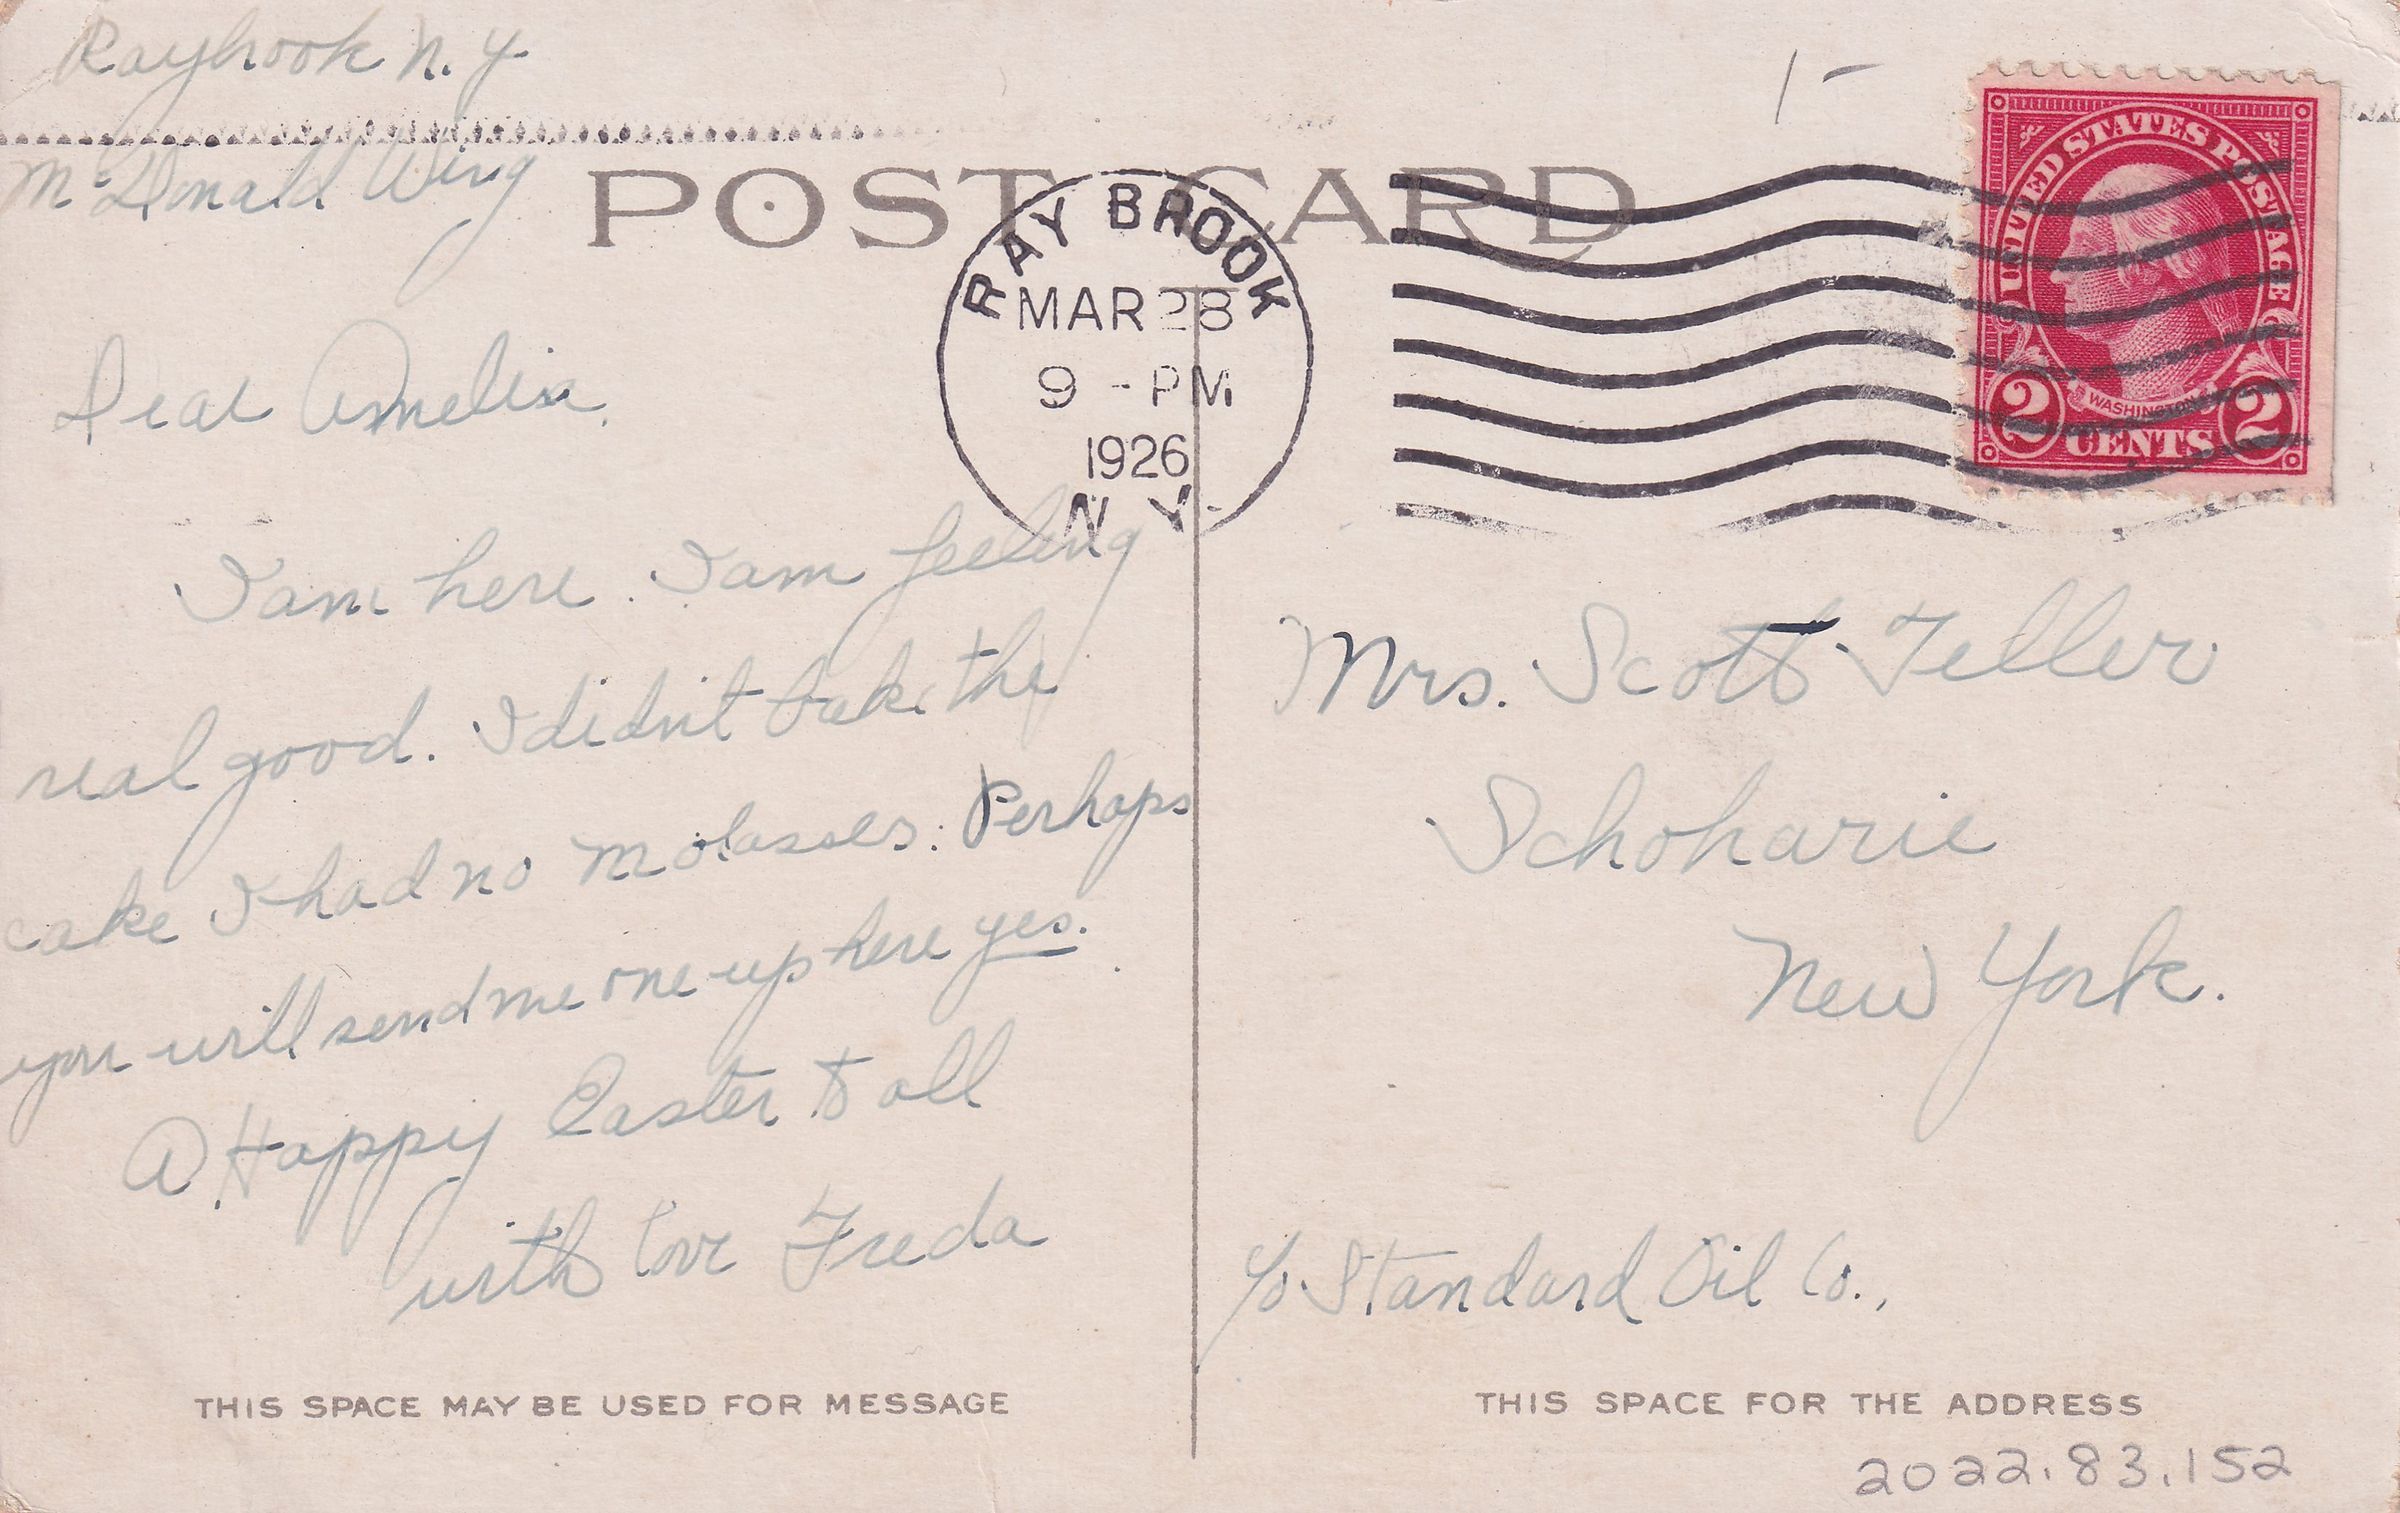 Raybrook N.Y.
McDonald Wing
POST CARD
RAY BROOK
MAR 28
9 - PM
1926
N Y.
UNITED STATES POSTAGE
WASHINGTON
2 CENTS 2
1 -
Dear Amelia,
I am here. I am feeling
real good. I didn't take the
cake I had no molasses. Perhaps
you will send me one up here yes.
A Happy Easter to all
with love Freda
THIS SPACE MAY BE USED FOR MESSAGE
Mrs. Scott Teller
Schoharie
New York.
c/o Standard Oil Co.,
THIS SPACE FOR THE ADDRESS
2022.83.152